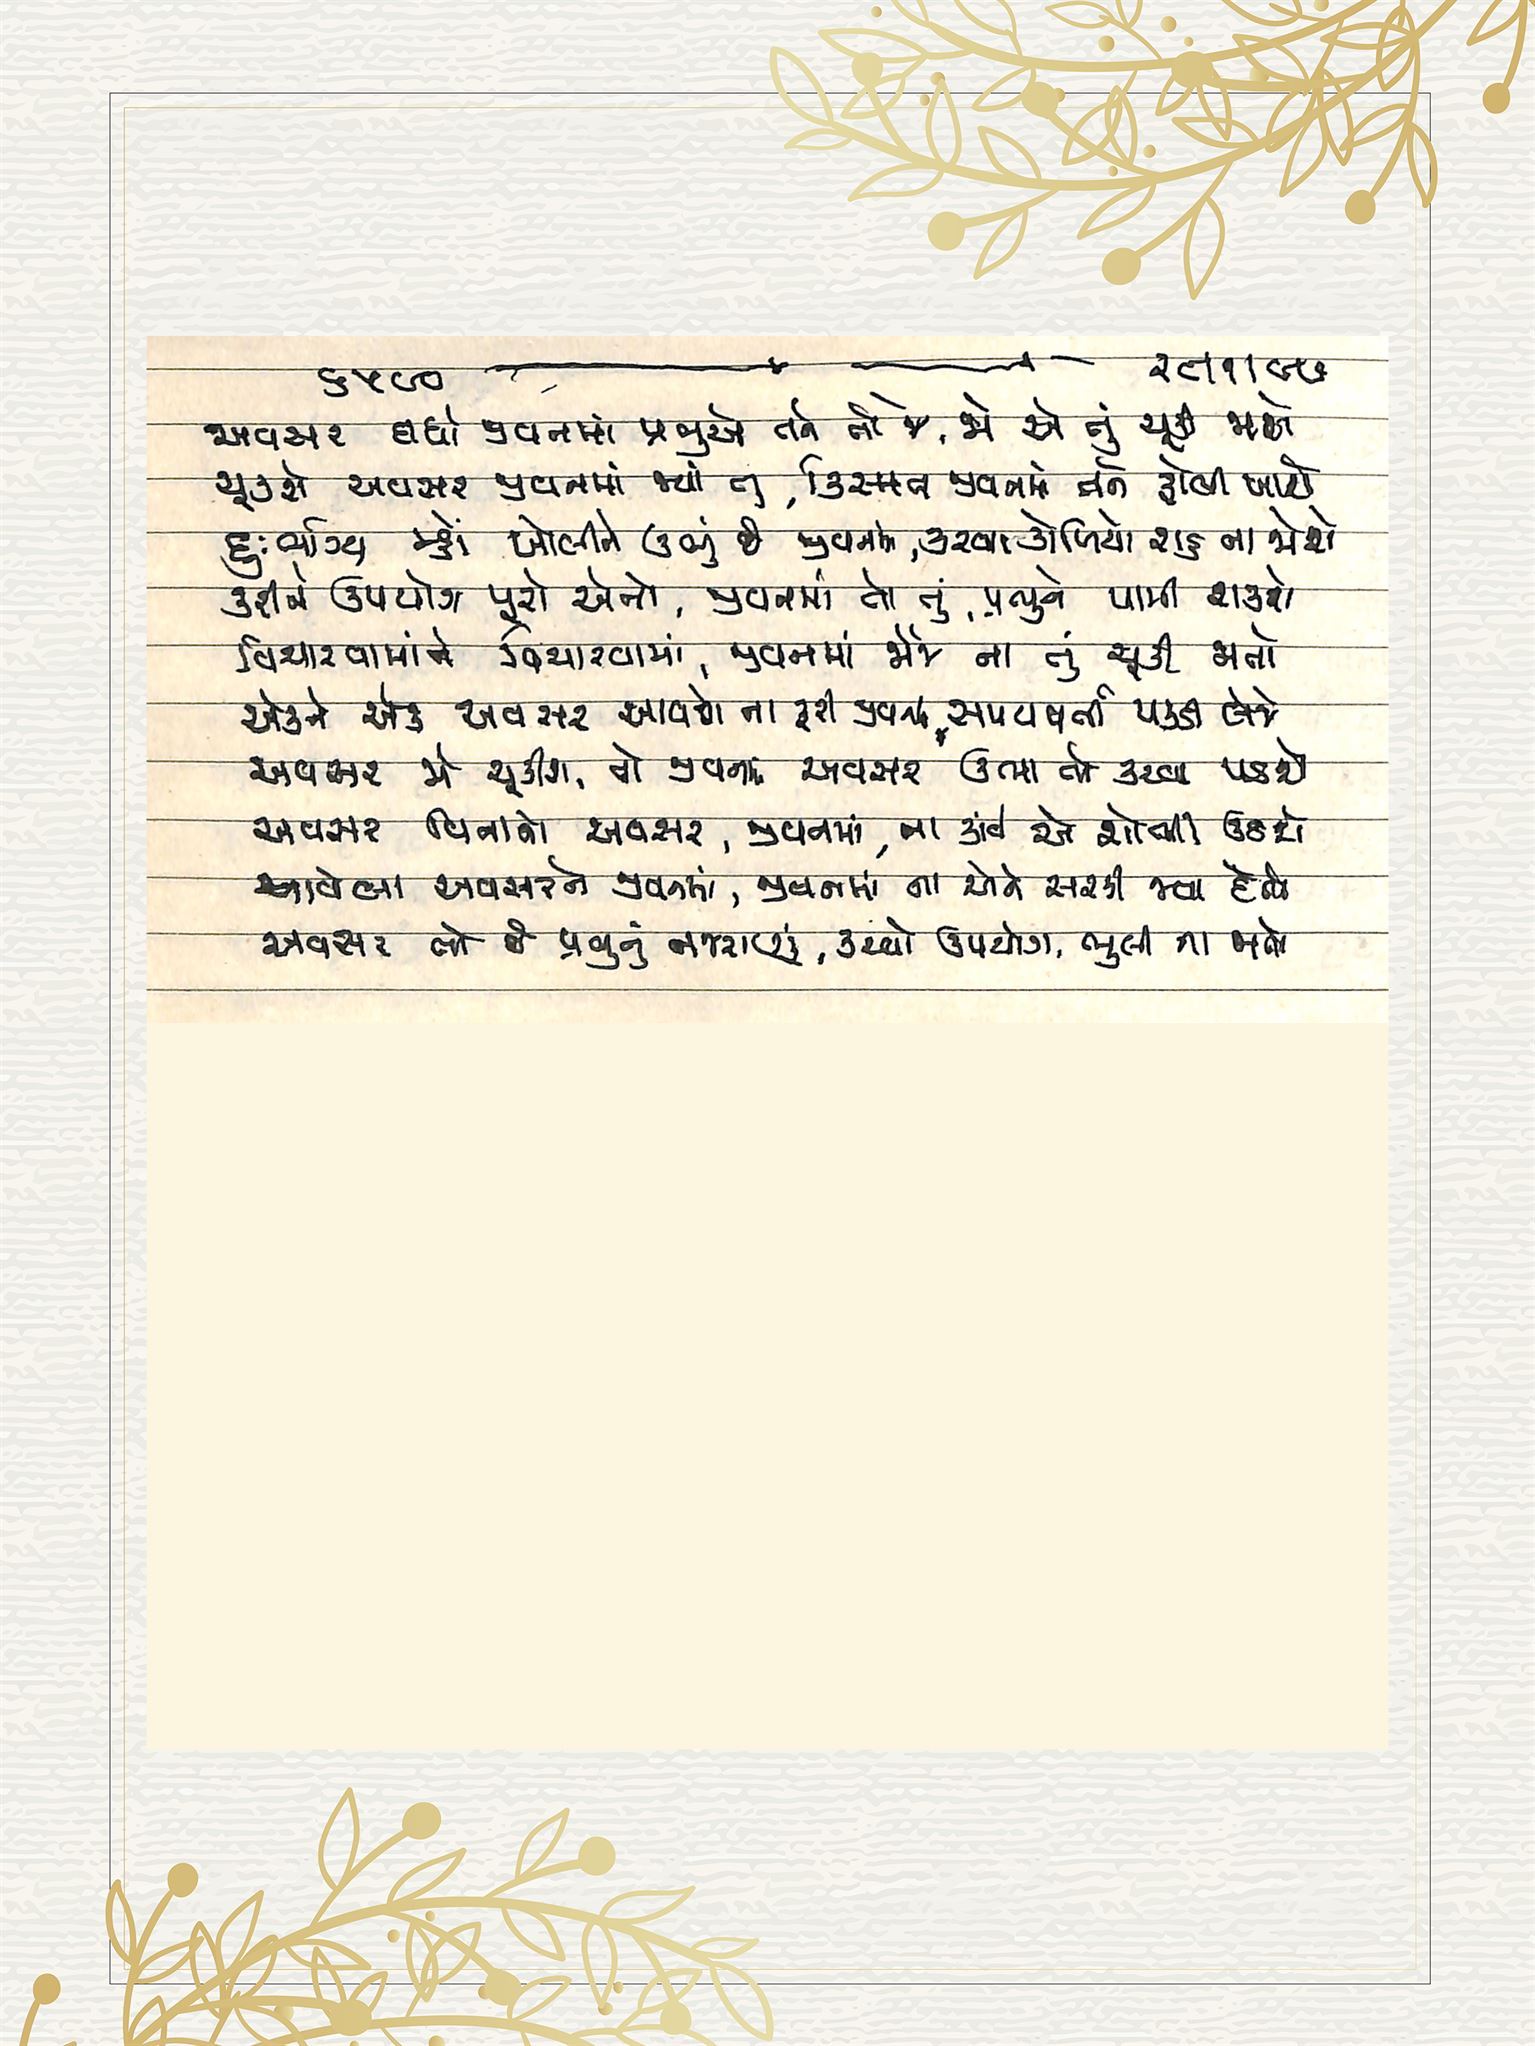 ૬૫૮૦ ૨૯।૧।૯૭
અવસર દીધો જીવનમાં પ્રભુએ તને તો જે, જો એ તું ચૂકી જાશે
ચૂકશે અવસર જીવનમાં જ્યાં તું, કિસ્મત જીવનમાં તને ફોલી ખાશે
દુઃર્ભાગ્ય મ્હોં ખોલીને ઊભું છે જીવનમાં, કરવા કોળિયો રાહ ના જોશે
કરીને ઉપયોગ પૂરો એનો, જીવનમાં તો તું, પ્રભુને પામી શકશે
વિચારવામાંને વિચારવામાં, જીવનમાં જોજે ના તું ચૂકી જાતો
એકને એક અવસર આવશે ના ફરી જીવનમાં, પકડી લેજે
અવસર જો ચૂકીશ, તો જીવનમાં અવસર ઊભા તો કરવા પડશે
અવસર વિનાનો અવસર, જીવનમાં, ના કાંઈ એ શોભી ઊઠશે
આવેલા અવસરને જીવનમાં, જીવનમાં ના એને સરકી જાવા દેતો
અવસર તો છે પ્રભુનું નજરાણું, કરજો ઉપયોગ, ભુલી ના જાતો